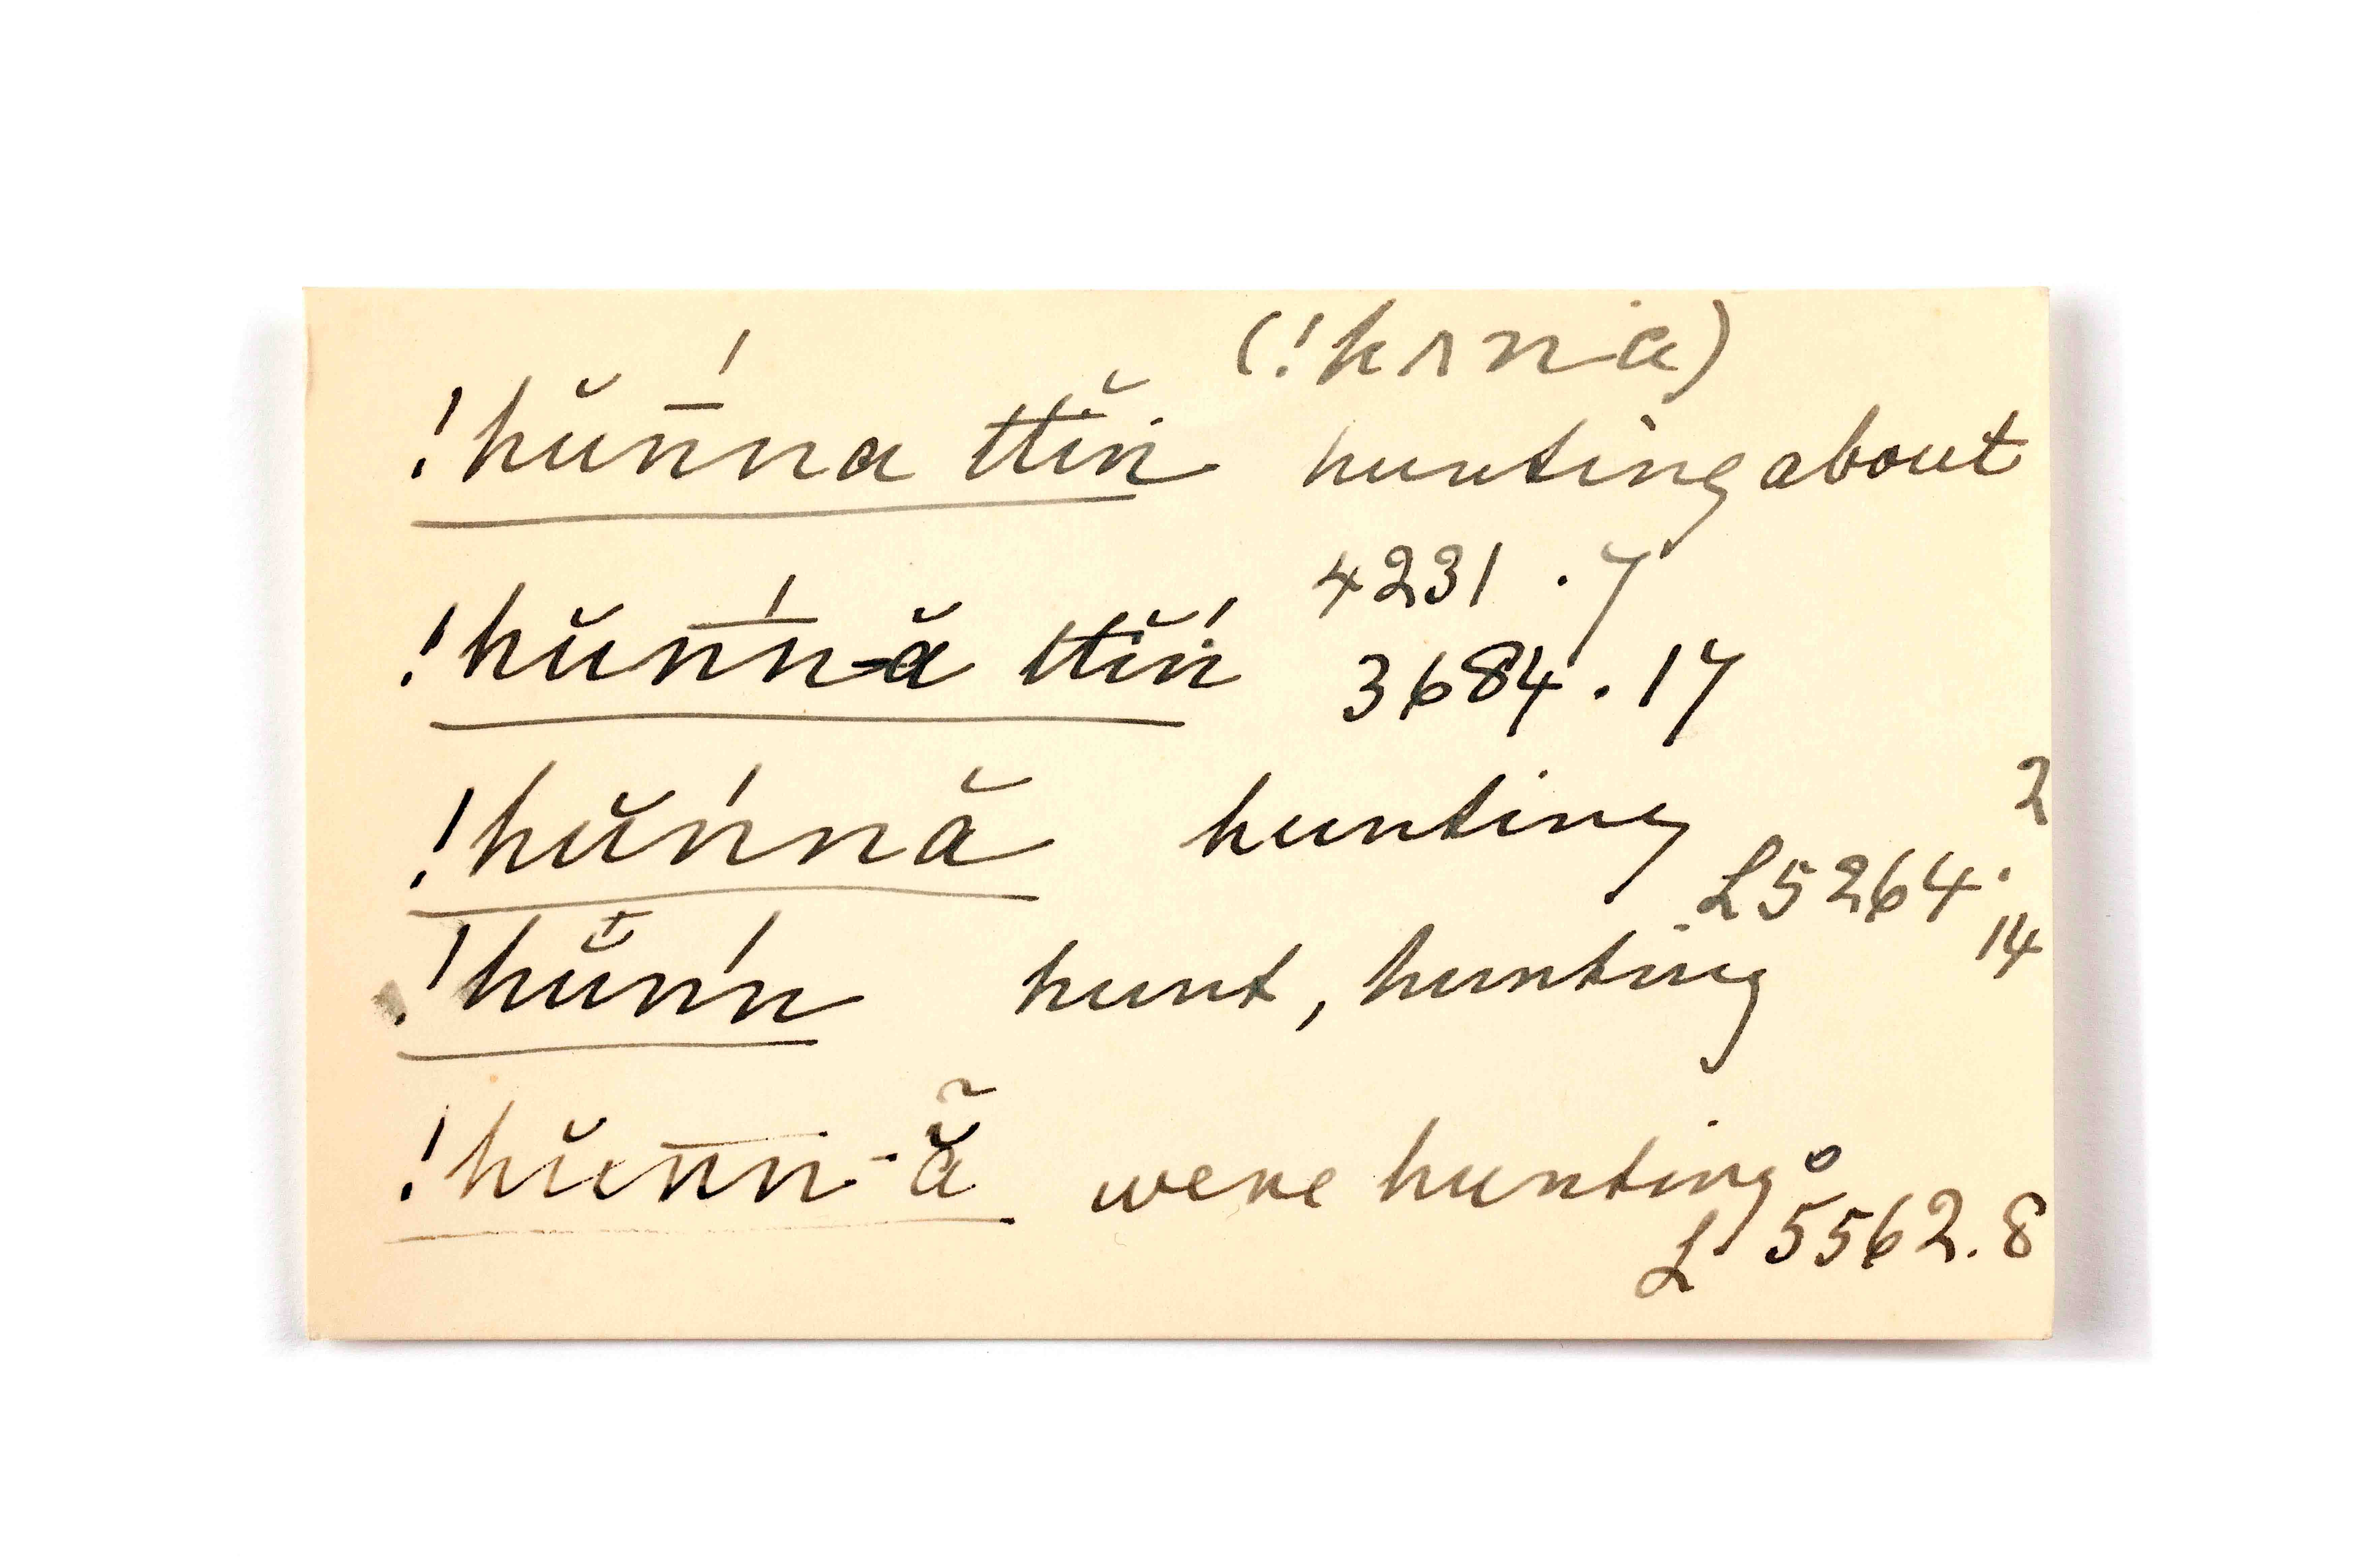 (!kʌna)
!hŭn̄́na ttĭṅ hunting about
4231.7
!hŭn̄́n-ă ttĭ́ṅ 3684.17
!hŭńnă hunting 2
L5264.
14
!hŭ̟ńn hunt, hunting
!hŭn̄n-ã̆ were hunting
L 5562.8